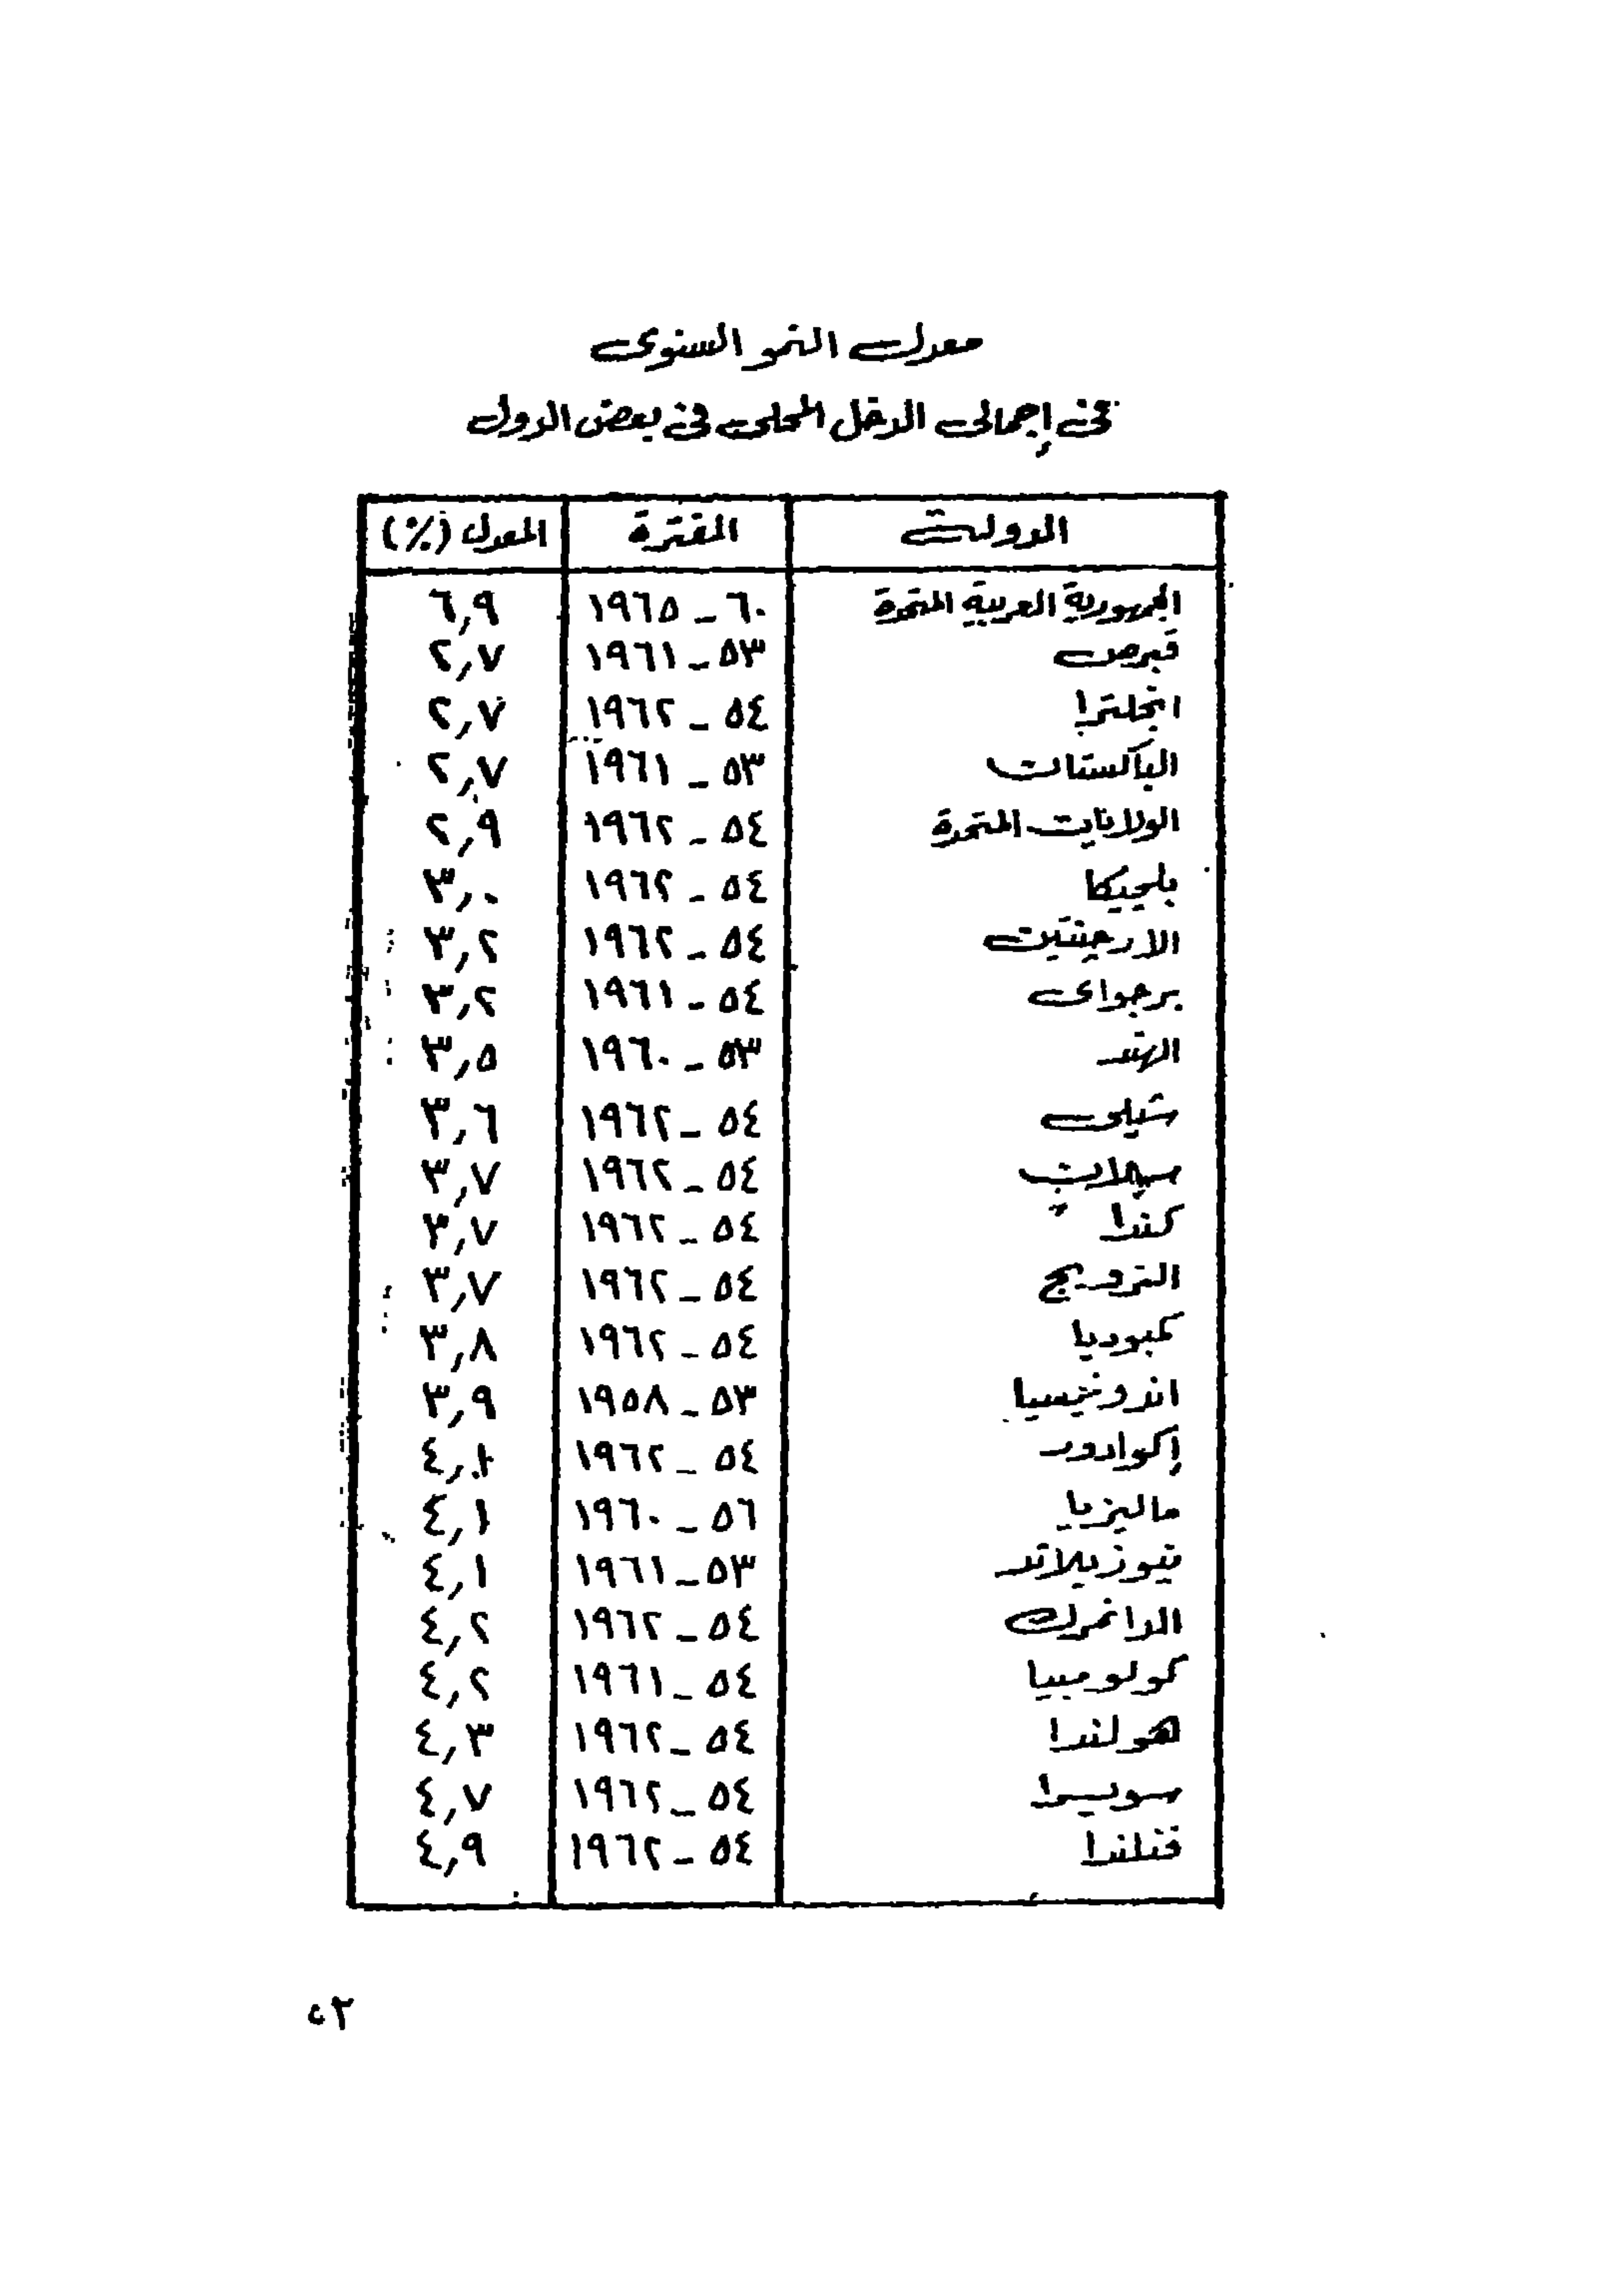 معدل النمو السنوى
فى إجمالى الدخل المحلى فى بعض الدول
الدولة الفترة المعدل (٪)
الجمهورية العربية المتحدة ٦٠ - ١٩٦٥ ٦,٩
قبرص ٥٣ - ١٩٦١ ٢,٧
انجلترا ٥٤ - ١٩٦٢ ٢,٧
الباكستان ٥٣ - ١٩٦١ ٢,٧
الولايات المتحدة ٥٤ - ١٩٦٢ ٢,٩
بلجيكا ٥٤ - ١٩٦٢ ٣,٠
الارجنتين ٥٤ - ١٩٦٢ ٣,٢
برجواى ٥٤ - ١٩٦١ ٣,٢
الهند ٥٣ - ١٩٦٠ ٣,٥
شيلى ٥٤ - ١٩٦٢ ٣,٦
سيلان ٥٤ - ١٩٦٢ ٣,٧
كندا ٥٤ - ١٩٦٢ ٣,٧
النرويج ٥٤ - ١٩٦٢ ٣,٧
كمبوديا ٥٤ - ١٩٦٢ ٣,٨
اندونيسيا ٥٣ - ١٩٥٨ ٣,٩
إكوادور ٥٤ - ١٩٦٢ ٤,١
ماليزيا ٥٦ - ١٩٦٠ ٤,١
نيوزيلاند ٥٣ - ١٩٦١ ٤,١
الدانمرك ٥٤ - ١٩٦٢ ٤,٢
كولومبيا ٥٤ - ١٩٦١ ٤,٢
هولندا ٥٤ - ١٩٦٢ ٤,٣
سويسرا ٥٤ - ١٩٦٢ ٤,٧
فنلندا ٥٤ - ١٩٦٢ ٤,٩
٥٢